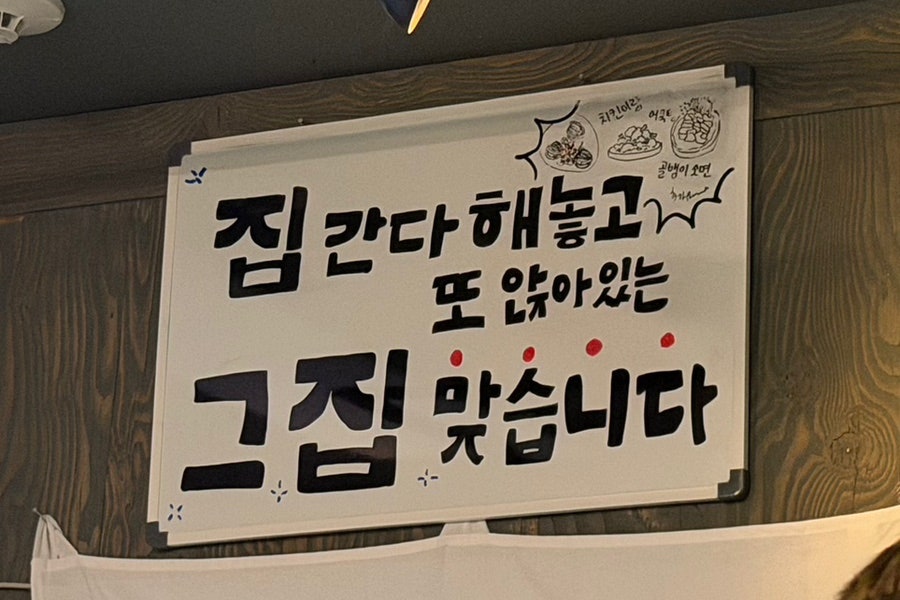 치킨이랑 어묵탕
골뱅이 소면
추가요~
집 간다 해놓고
또 앉아있는
그집 맞습니다